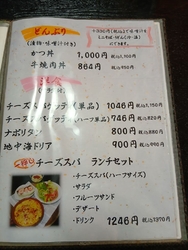 どんぶり
(漬物・味噌汁付き)
かつ丼 1,000円 税込1,100円
牛焼肉丼 864円 税込950円
チーズスパゲッティ(単品) 1046円 税込1,150円
チーズスパゲッティ(ハーフ単品) 746円 税込820円
ナポリタン 800円 税込880円
地中海ドリア 900円 税込990円
チーズスパ ランチセット
・チーズスパ(ハーフサイズ)
・サラダ
・フルーツサンド
・デザート
・ドリンク 1246円 税込1370円